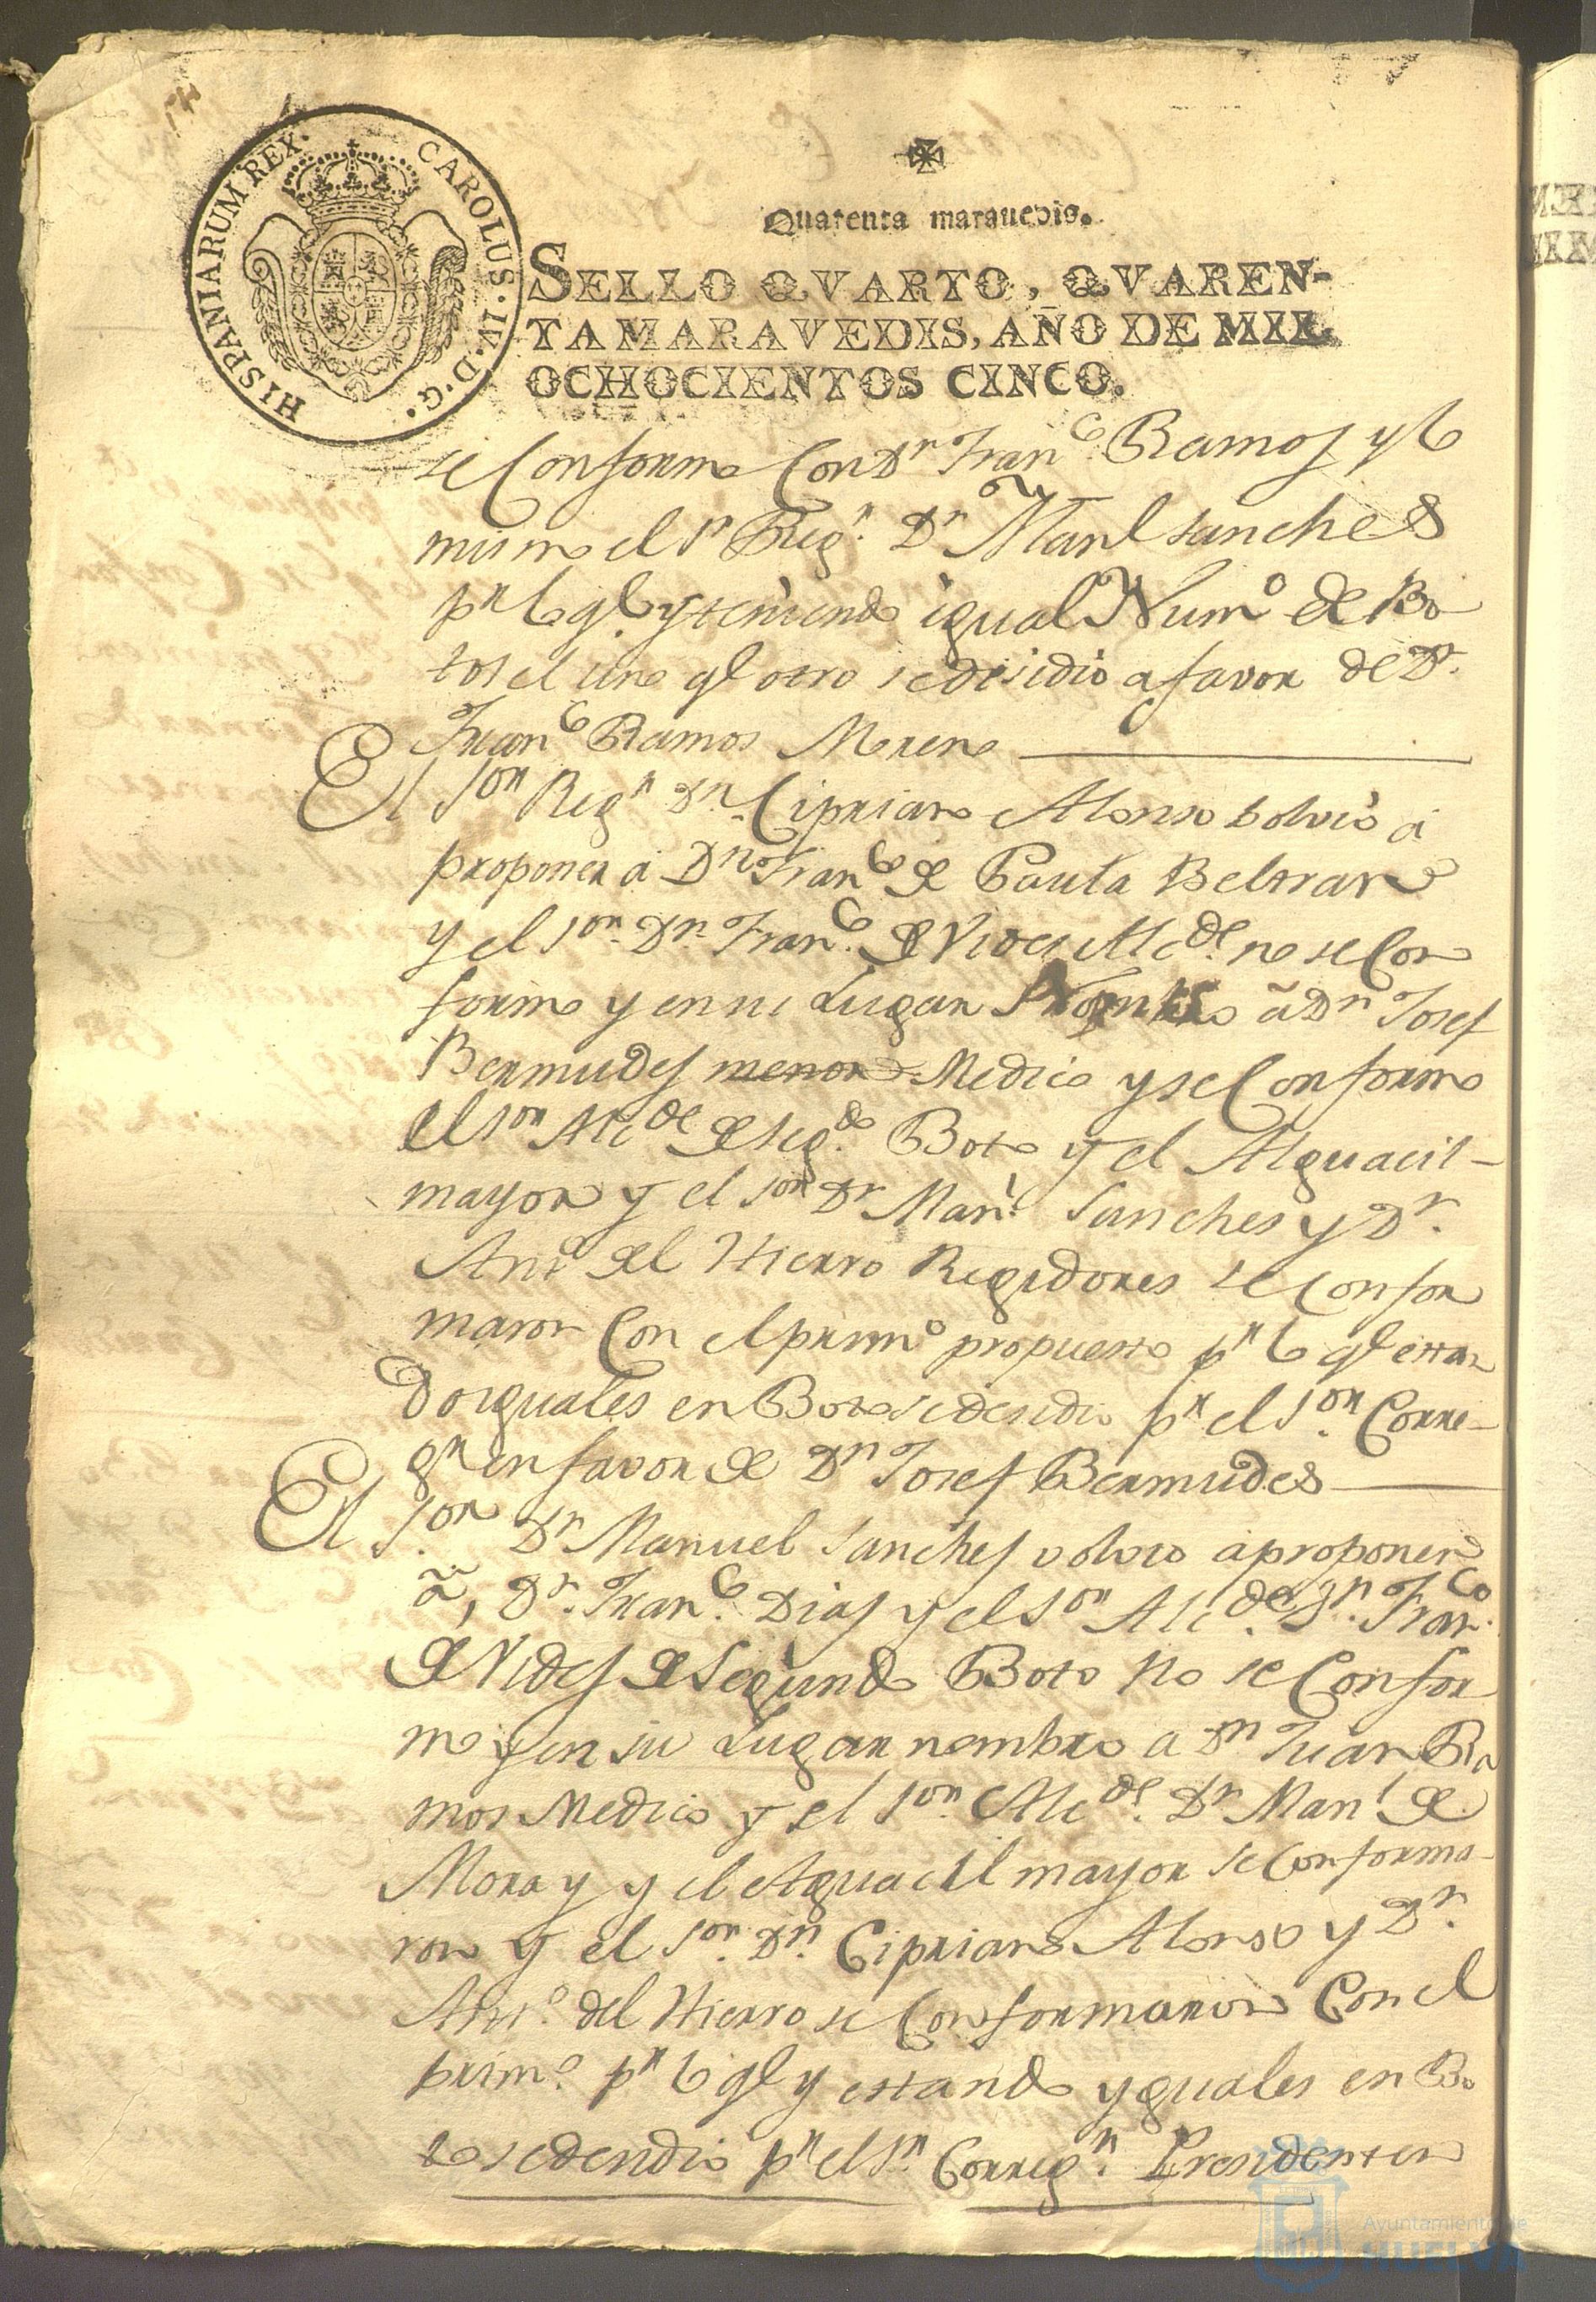 HISPANIARUM REX. CAROLUS. IV. D. G.
Quarenta marauedis.
SELLO QVARTO, QVAREN-
TA MARAVEDIS, AÑO DE MIL
OCHOCIENTOS CINCO.
se Conformo Con Dn Franco Ramos y lo
mismo el Sr Regr. Dn Manl Sanches
pr lo ql y teniendo igual Numo de Bo
tos el uno ql otro se desidio a favor de Dn.
Franco Ramos Moreno
El Sor Regr Dn Cipriano Alonso bolvio á
proponer á Dn Franco de Paula Beltran
y el Sor Dn Franco de Vides Alcde no se Con
formo y en su Lugar Nombro á Dn Josef
Bermudes menor Medico y se Conformo
el Sor Alcde de Segdo Boto y el Alguacil
mayor y el Sor Dn Manl Sanches y Dn.
Anto del Hierro Regidores se Confor
maron Con el primo propuesto pr lo ql estan
do iguales en Botos se desidio pr el Sor Corre-
gr en favor de Dn Josef Bermudes
El Sor Dn Manuel Sanches volvio a proponer
á, Dn Franco Dias y el Sor Alcde Dn Franco
de Vides de Segundo Boto no se Confor
mo y en su Lugar nombro a Dn Juan Ra
mos Medico y el Sor Alcde Dn Manl de
Mora y y el Aguacil mayor se Conforma-
ron y el Sor Dn Cipriano Alonso y Dn.
Anto del Hierro se Conformaron Con el
primo pr lo ql y estando yguales en Bo
tos se desidio pr el Sr Corregr Presidente en
Ayuntamiento de
HUELVA